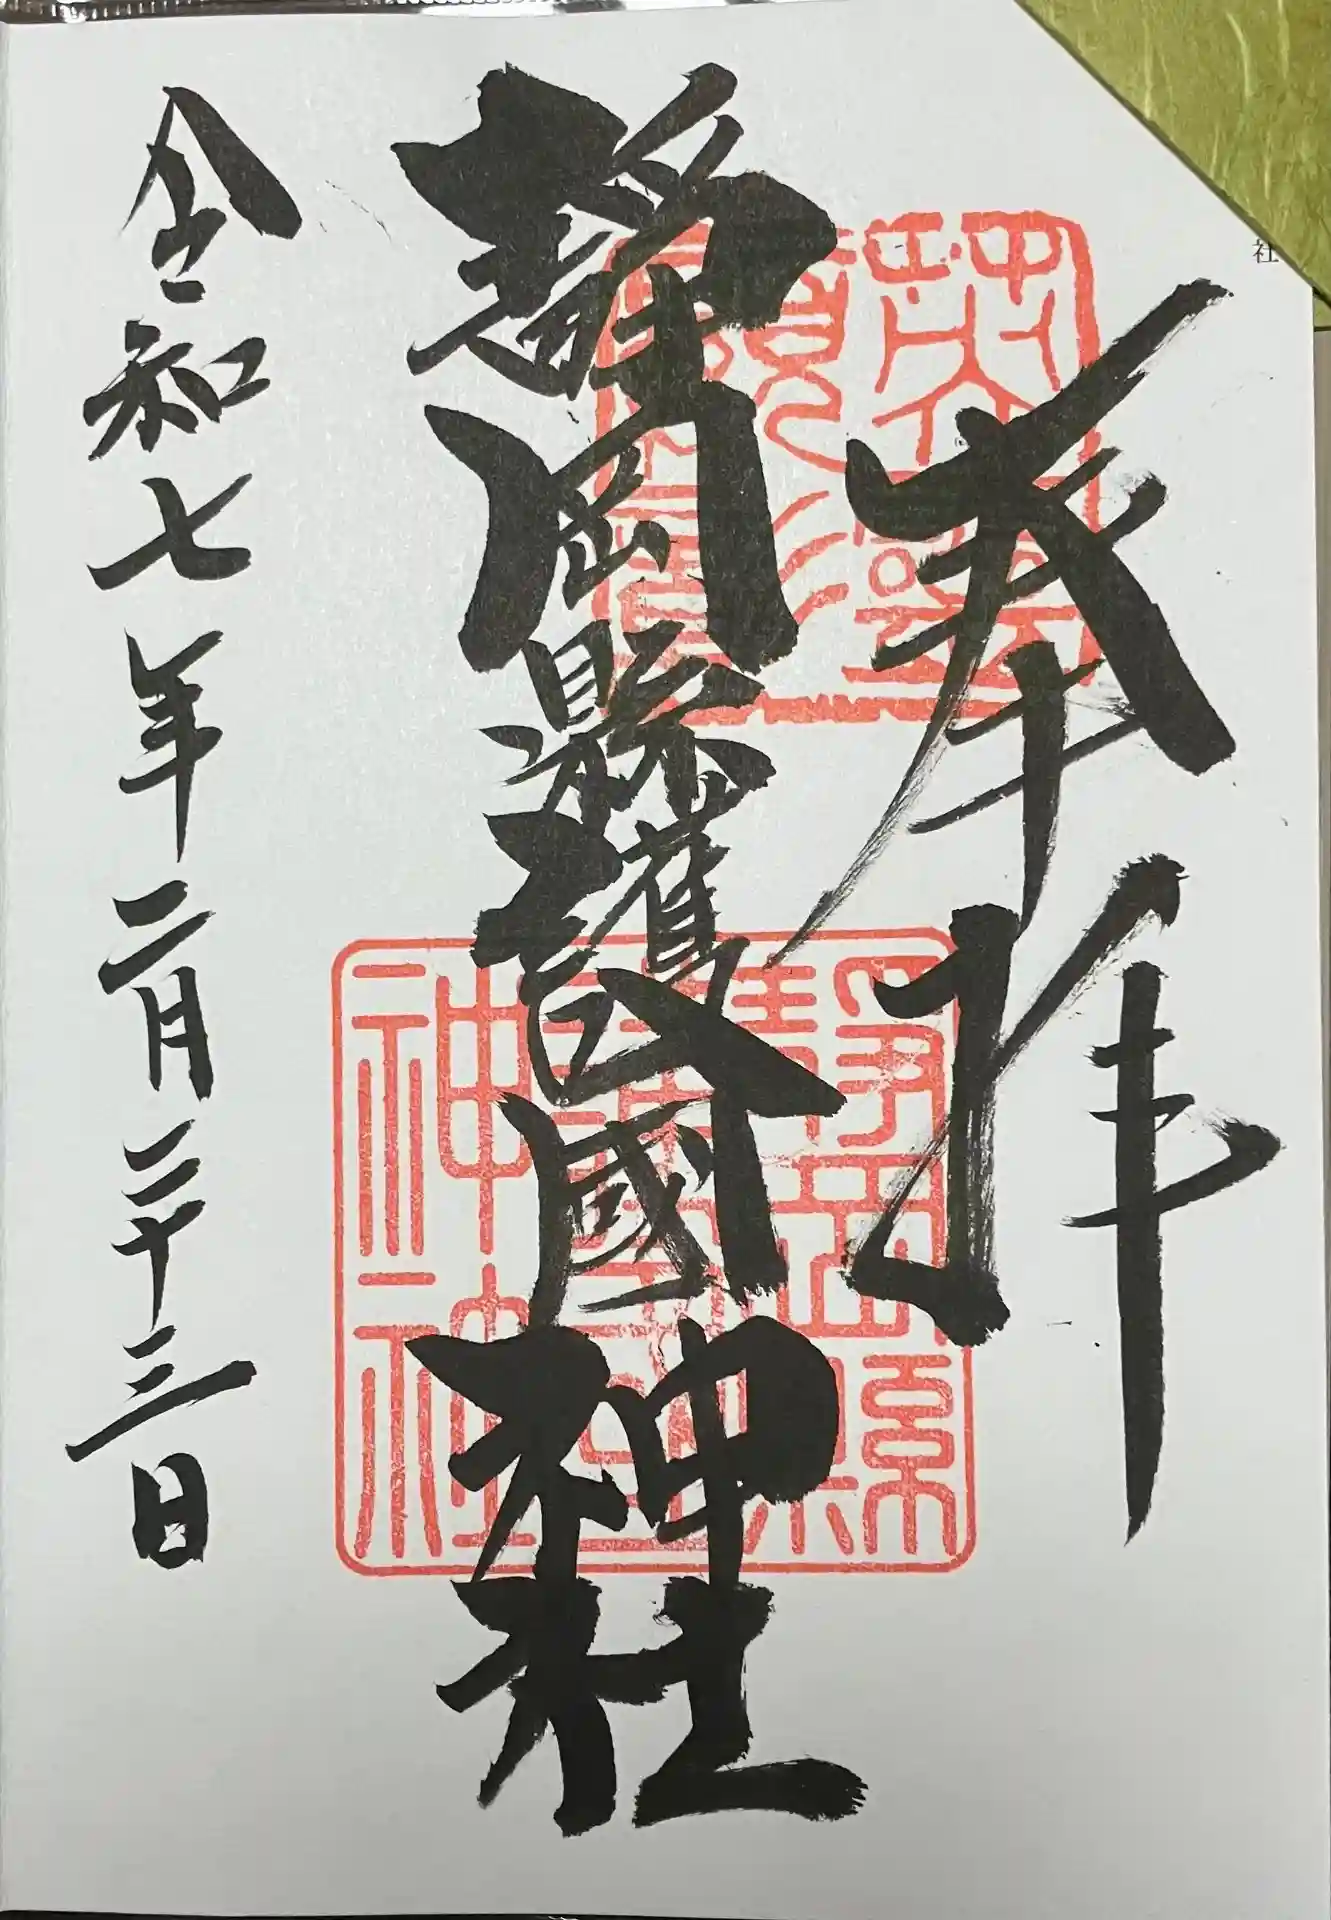 社
奉拝
靜岡縣護國神社
令和七年二月二十三日
靜岡縣
護國
神社